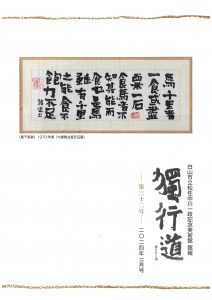 馬千里者
一食或盡
粟一石
食馬者不
知其能而
食也是馬
雖有千里
之能食不
飽力不足
《馬千里者》 1970年頃
白山市立松任中川一政記念美術館 館報
獨行道
第三十二号
二〇二四年三月号